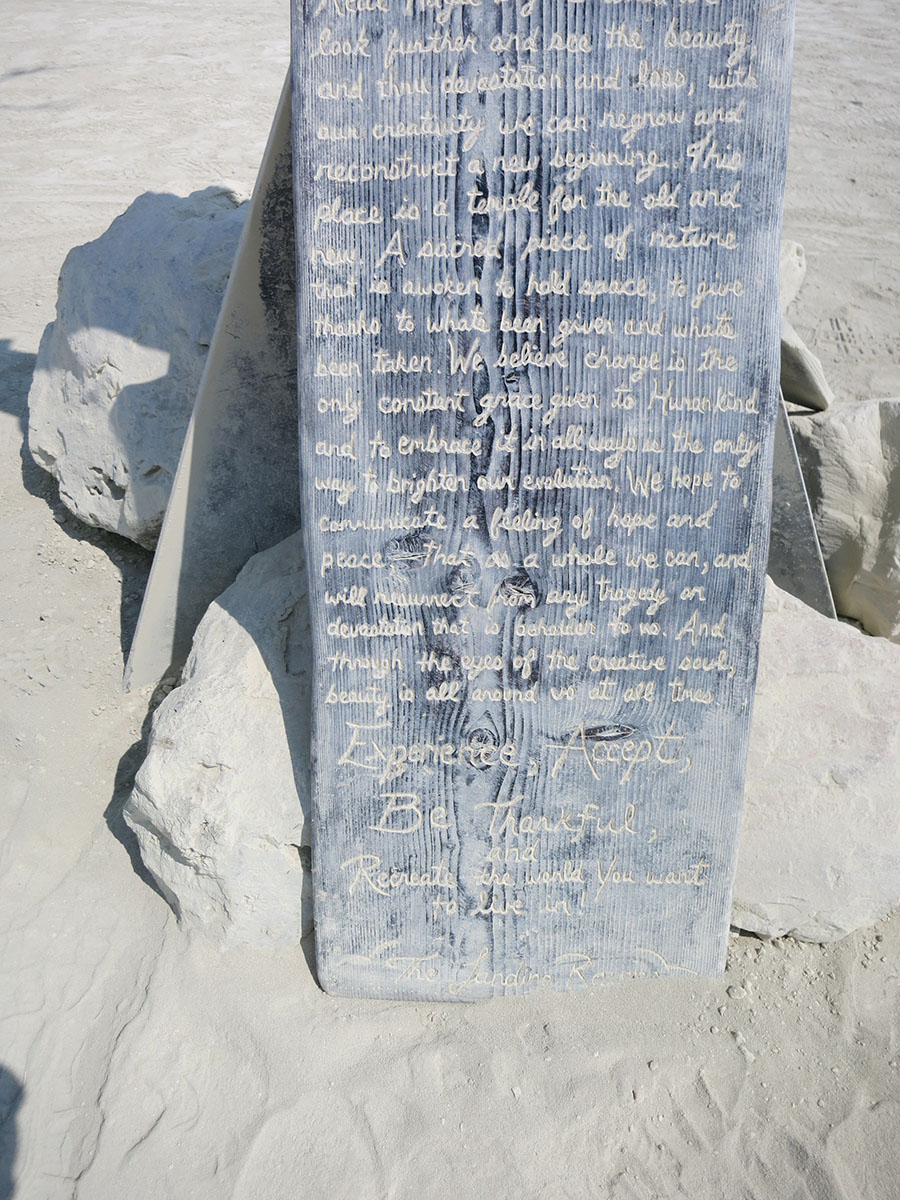 look further and see the beauty,
and thru devastation and loss, with
our creativity we can regrow and
reconstruct a new beginning. This
place is a temple for the old and
new. A sacred piece of nature
that is awoken to hold space, to give
thanks to whats been given and whats
been taken. We believe change is the
only constant grace given to Humankind
and to embrace it in all ways is the only
way to brighten our evolution. We hope to
communicate a feeling of hope and
peace. That as a whole we can, and
will resurrect from any tragedy or
devastation that is beholden to us. And
through the eyes of the creative soul,
beauty is all around us at all times.
Experience, Accept,
Be Thankful,
and
Recreate the world You want
to live in!
The